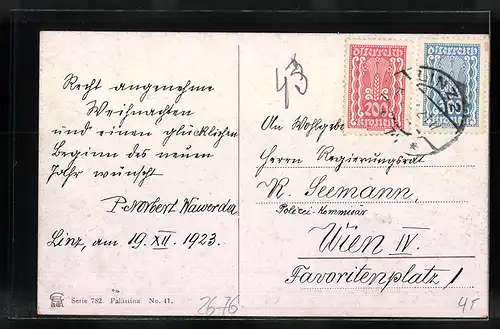 Recht angenehme
Weihnachten
und einen glücklichen
Beginn des neuen
Jahr wünscht
P. Norbert Wawerda
Linz, am 19. XII. 1923.
Serie 782. Palästina No. 41.
2676
43
österreich
200
kronen
österreich
LINZ 2
An Wohlgeb
Herrn Regierungsrat
R. Seemann,
Polizei-Kommissär
Wien IV.
Favoritenplatz 1
45